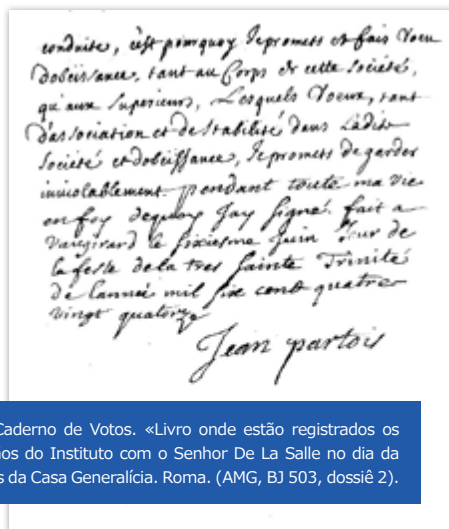 conduite, c'est pourquoy Je promets et fais Voeu
D'obeissance, tant au Corps de cette Société,
qu'aux Superieurs, Lesquels Voeux, tant
D'association et de Stabilité dans Ladite
Société et dobeissance, Je promets de garder
inviolablement pendant toute ma vie
en foy dequoy Jay signé. fait a
Vaugirard le sixiesme Juin Jour de
la feste de la tres sainte Trinité
de Lannée mil six cent quatre
vingt quatorze
Jean partois
Caderno de Votos. «Livro onde estão registrados os
os do Instituto com o Senhor De La Salle no dia da
s da Casa Generalícia. Roma. (AMG, BJ 503, dossiê 2).